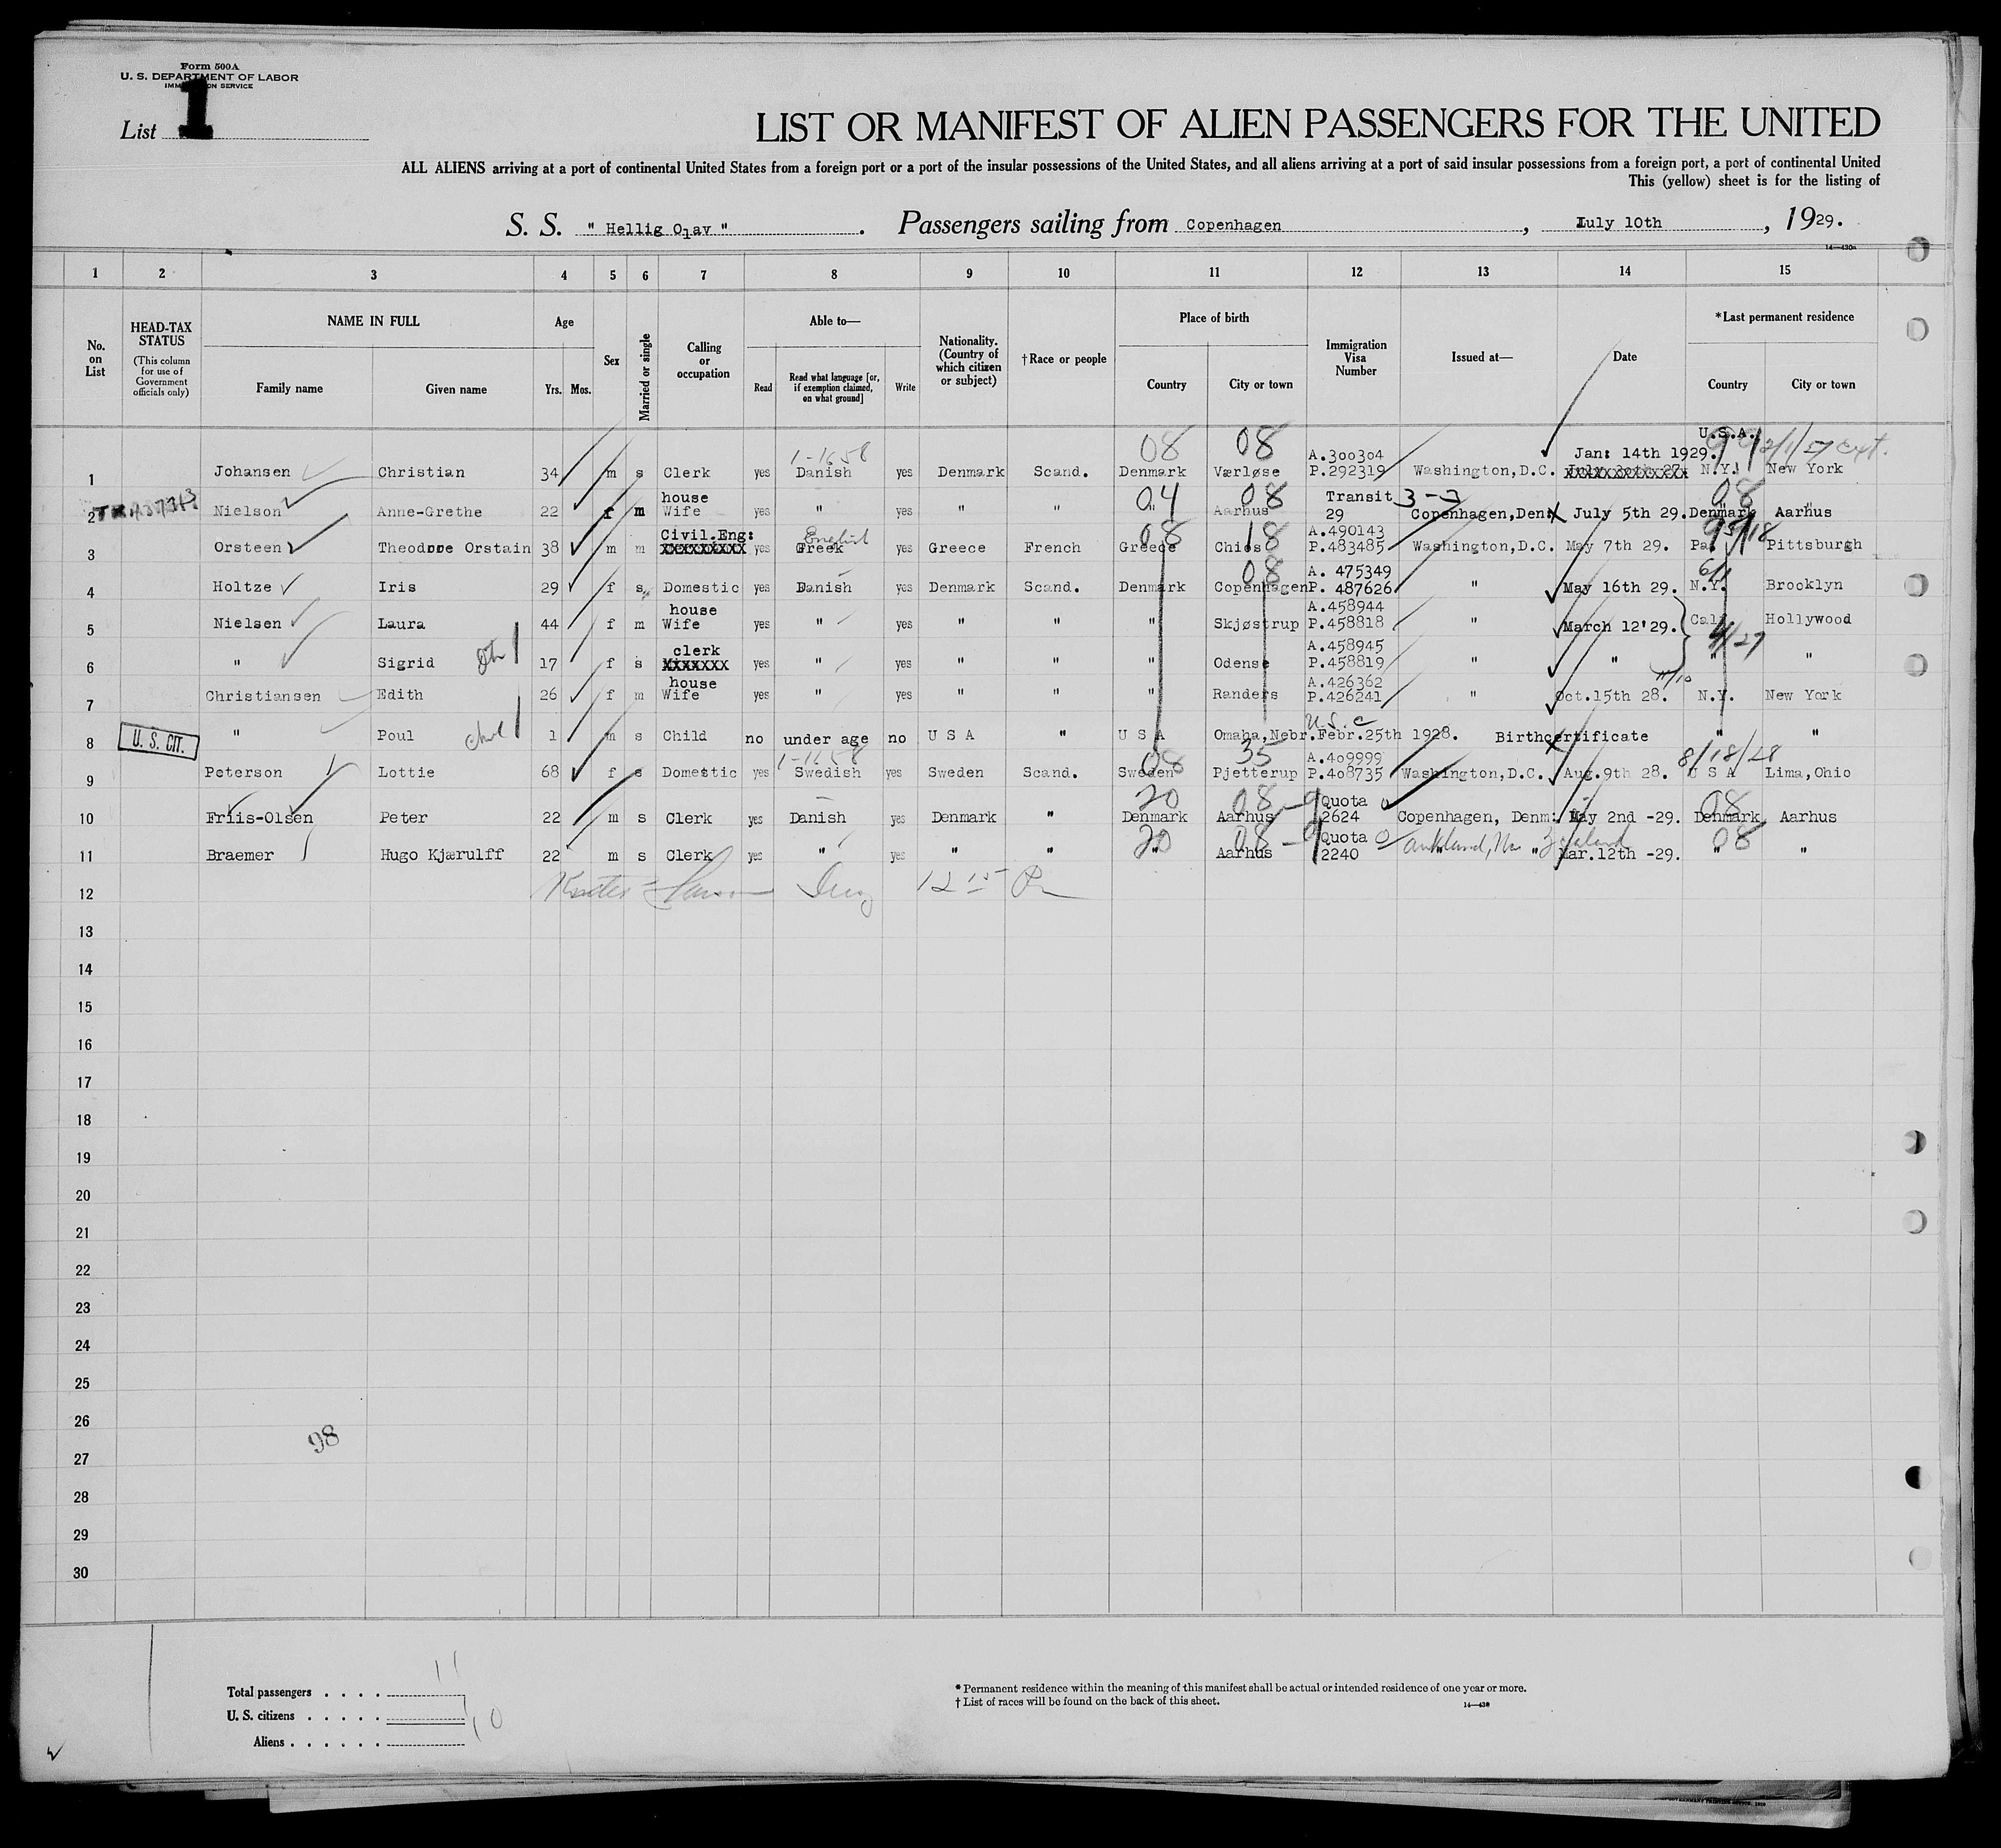 Form 500A
U. S. DEPARTMENT OF LABOR
IMMIGRATION SERVICE
List 1
LIST OR MANIFEST OF ALIEN PASSENGERS FOR THE UNITED
ALL ALIENS arriving at a port of continental United States from a foreign port or a port of the insular possessions of the United States, and all aliens arriving at a port of said insular possessions from a foreign port, a port of continental United
This (yellow) sheet is for the listing of
S. S. " Hellig Olav " . Passengers sailing from Copenhagen , July 10th , 1929.
14—430a
1 2 3 4 5 6 7 8 9 10 11 12 13 14 15
No. on List
HEAD-TAX STATUS (This column for use of Government officials only)
NAME IN FULL Family name Given name
Age Yrs. Mos.
Sex
Married or single
Calling or occupation
Able to— Read Read what language [or, if exemption claimed, on what ground] Write
Nationality. (Country of which citizen or subject)
†Race or people
Place of birth Country City or town
Immigration Visa Number
Issued at—
Date
*Last permanent residence Country City or town
08 08 U.S.A.
1-1658 A.300304 Jan: 14th 1929.
1 Johansen Christian 34 m s Clerk yes Danish yes Denmark Scand. Denmark Værløse P.292319 Washington,D.C. N.Y. New York
house 04 08 Transit 3-3 08
2 Nielson Anne-Grethe 22 f m Wife yes " yes " " " Aarhus 29 Copenhagen,Denm July 5th 29. Denmark Aarhus
Civil.Eng: English 08 18 A.490143
3 Orsteen Theodore Orstain 38 m m XXXXXXXXX yes Greek yes Greece French Greece Chios P.483485 Washington,D.C. May 7th 29. Pa. Pittsburgh
08 A. 475349
4 Holtze Iris 29 f s Domestic yes Danish yes Denmark Scand. Denmark Copenhagen P. 487626 " May 16th 29. N.Y. Brooklyn
house A.458944
5 Nielsen Laura 44 f m Wife yes " yes " " " Skjøstrup P.458818 " March 12'29. Calf Hollywood
clerk A.458945 4/27
6 " Sigrid 17 f s XXXXXXX yes " yes " " " Odense P.458819 " " " "
house A.426362 11/10
7 Christiansen Edith 26 f m Wife yes " yes " " " Randers P.426241 " Oct.15th 28. N.Y. New York
U.S.C
8 U. S. CIT. " Poul 1 m s Child no under age no U S A " U S A Omaha,Nebr. Febr.25th 1928. Birthcertificate " "
1-1658 08 35 A.409999 8/18/28
9 Peterson Lottie 68 f s Domestic yes Swedish yes Sweden Scand. Sweden Pjetterup P.408735 Washington,D.C. Aug.9th 28. U S A Lima,Ohio
20 08 Quota 08
10 Friis-Olsen Peter 22 m s Clerk yes Danish yes Denmark " Denmark Aarhus 2624 Copenhagen, Denm: May 2nd -29. Denmark Aarhus
20 08 Quota Auckland, New Zealand 08
11 Braemer Hugo Kjærulff 22 m s Clerk yes " yes " " " Aarhus 2240 " " Mar.12th -29. " "
12
13
14
15
16
17
18
19
20
21
22
23
24
25
26
98
27
28
29
30
Total passengers . . . . 11
U. S. citizens . . . . . 1
Aliens . . . . . . 10
* Permanent residence within the meaning of this manifest shall be actual or intended residence of one year or more.
† List of races will be found on the back of this sheet.
14—430